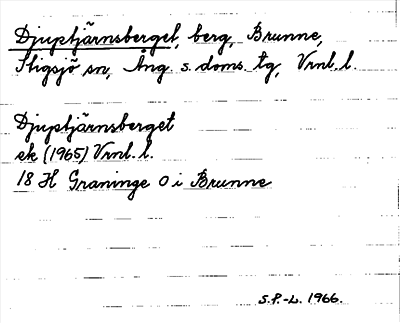 Djuptjärnsberget, berg, Brunne,
Stigsjö sn, Ång. s. doms. tg, Vrnl. l.
Djuptjärnsberget
ek (1965) Vrnl. l.
18 H Graninge O i Brunne
S.P.-L. 1966.